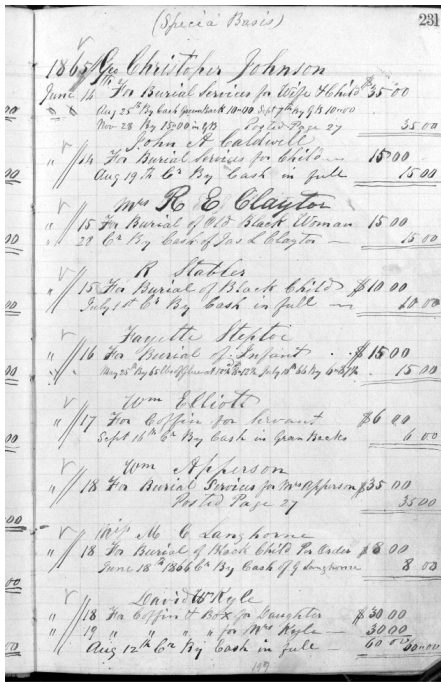 (Specia Basis)
231
1865 Geo Christopher Johnson
June 14 For Burial Services for Wife & Child $35.00
Aug 25th By Cash Green Back 10=00 Sept 7th By G B 10=00
Nov 28 By 15=00 in GB Posted Page 27 35 00
John A Caldwell
" 14 For Burial Services for Child 15 00
Aug 19th Cr By Cash in full 15 00
Mrs R E Claytor
" 15 For Burial of Old Black Woman 15 00
" 28 Cr By Cash of Jas L Claytor 15 00
R Stabler
" 15 For Burial of Black Child $10 00
July 1st Cr By Cash in full 10 00
Fayette Steptoe
" 16 For Burial of Infant $15 00
15 00
Wm Elliott
" 17 For Coffin for Servant $6 00
Sept 16th Cr By Cash in Green Backs 6 00
Wm Apperson
" 18 For Burial Services for Mrs Apperson $35 00
Posted Page 27 35 00
Miss M C Langhorne
" 18 For Burial of Black Child Per Order $8 00
June 18th 1866 Cr By Cash of G Langhorne 8 00
David W Kyle
" 18 For Coffin & Box for Daughter $30 00
" 19 " " " " for Mrs Kyle 30 00
Aug 12th Cr By Cash in full 60 00 60 00